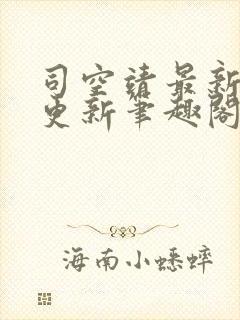 司空靖最新
更新笔趣阁
海南小蟋蟀